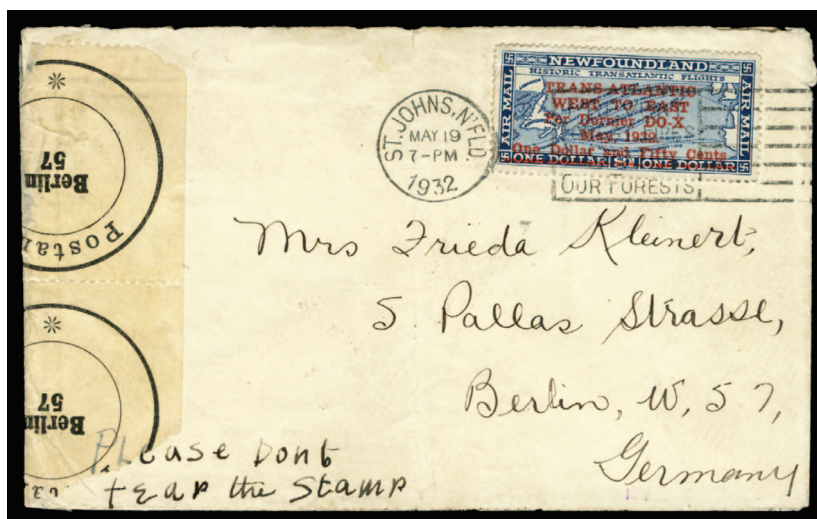 NEWFOUNDLAND
HISTORIC TRANSATLANTIC FLIGHTS
AIR MAIL
AIR MAIL
TRANS-ATLANTIC
WEST TO EAST
Per Dornier DO-X
May, 1932.
One Dollar and Fifty Cents
ONE DOLLAR $1 ONE DOLLAR
ST. JOHNS, N'FLD.
MAY 19
7-PM
1932
OUR FORESTS
Mrs Frieda Kleinert,
5 Pallas Strasse,
Berlin, W, 57,
Germany
Please Dont
tear the Stamp
Berlin
57
Postan
Berlin
57